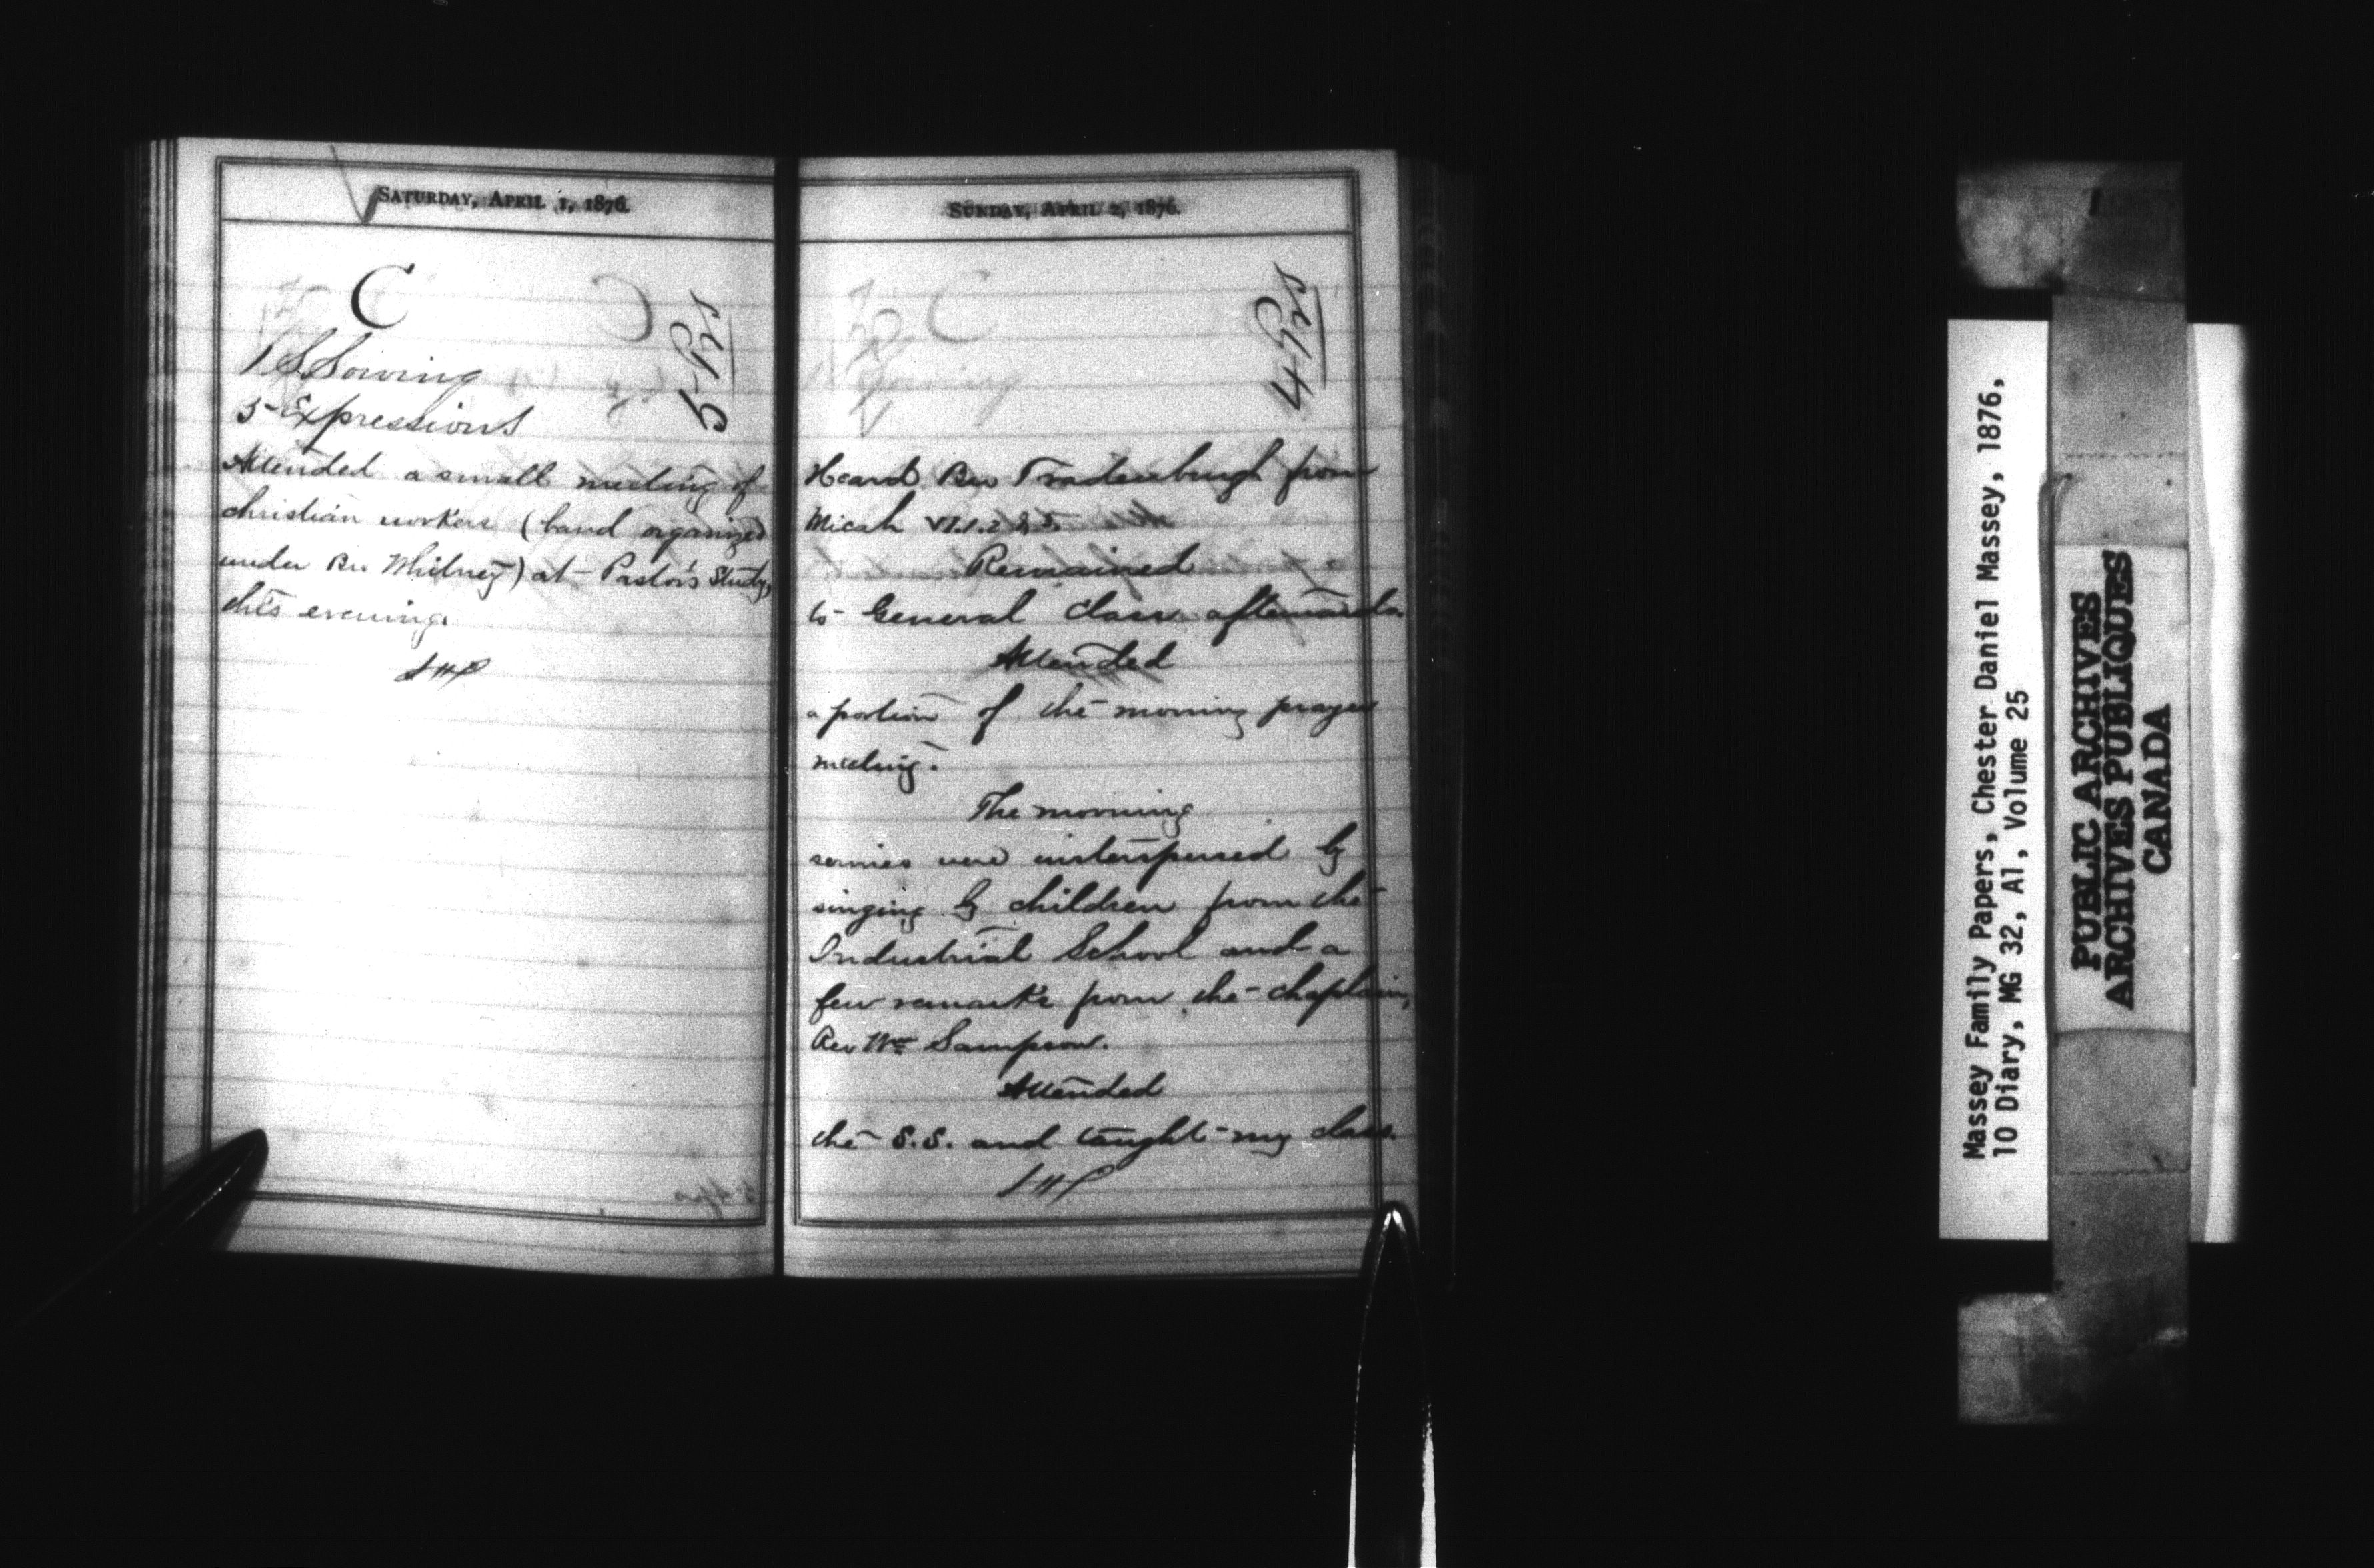 SATURDAY, APRIL 1, 1876.
C
5 Prs
1 S. Sowing
5 Expressions
Attended a small meeting of
christian workers (band organized
under Rev Whitney) at Pastor's Study,
this evening.
SUNDAY, APRIL 2, 1876.
4 Prs
Heard Rev from
Micah VI. 1. 2
Remained
to General Class afterwards
Attended
a portion of the morning prayer
meeting.
The morning
services were interspersed by
singing by children from the
Industrial School and a
few remarks from the chaplain,
Rev Wm Sampson.
Attended
the S.S. and taught my class.
Massey Family Papers, Chester Daniel Massey, 1876,
10 Diary, MG 32, A1, Volume 25
PUBLIC ARCHIVES
ARCHIVES PUBLIQUES
CANADA